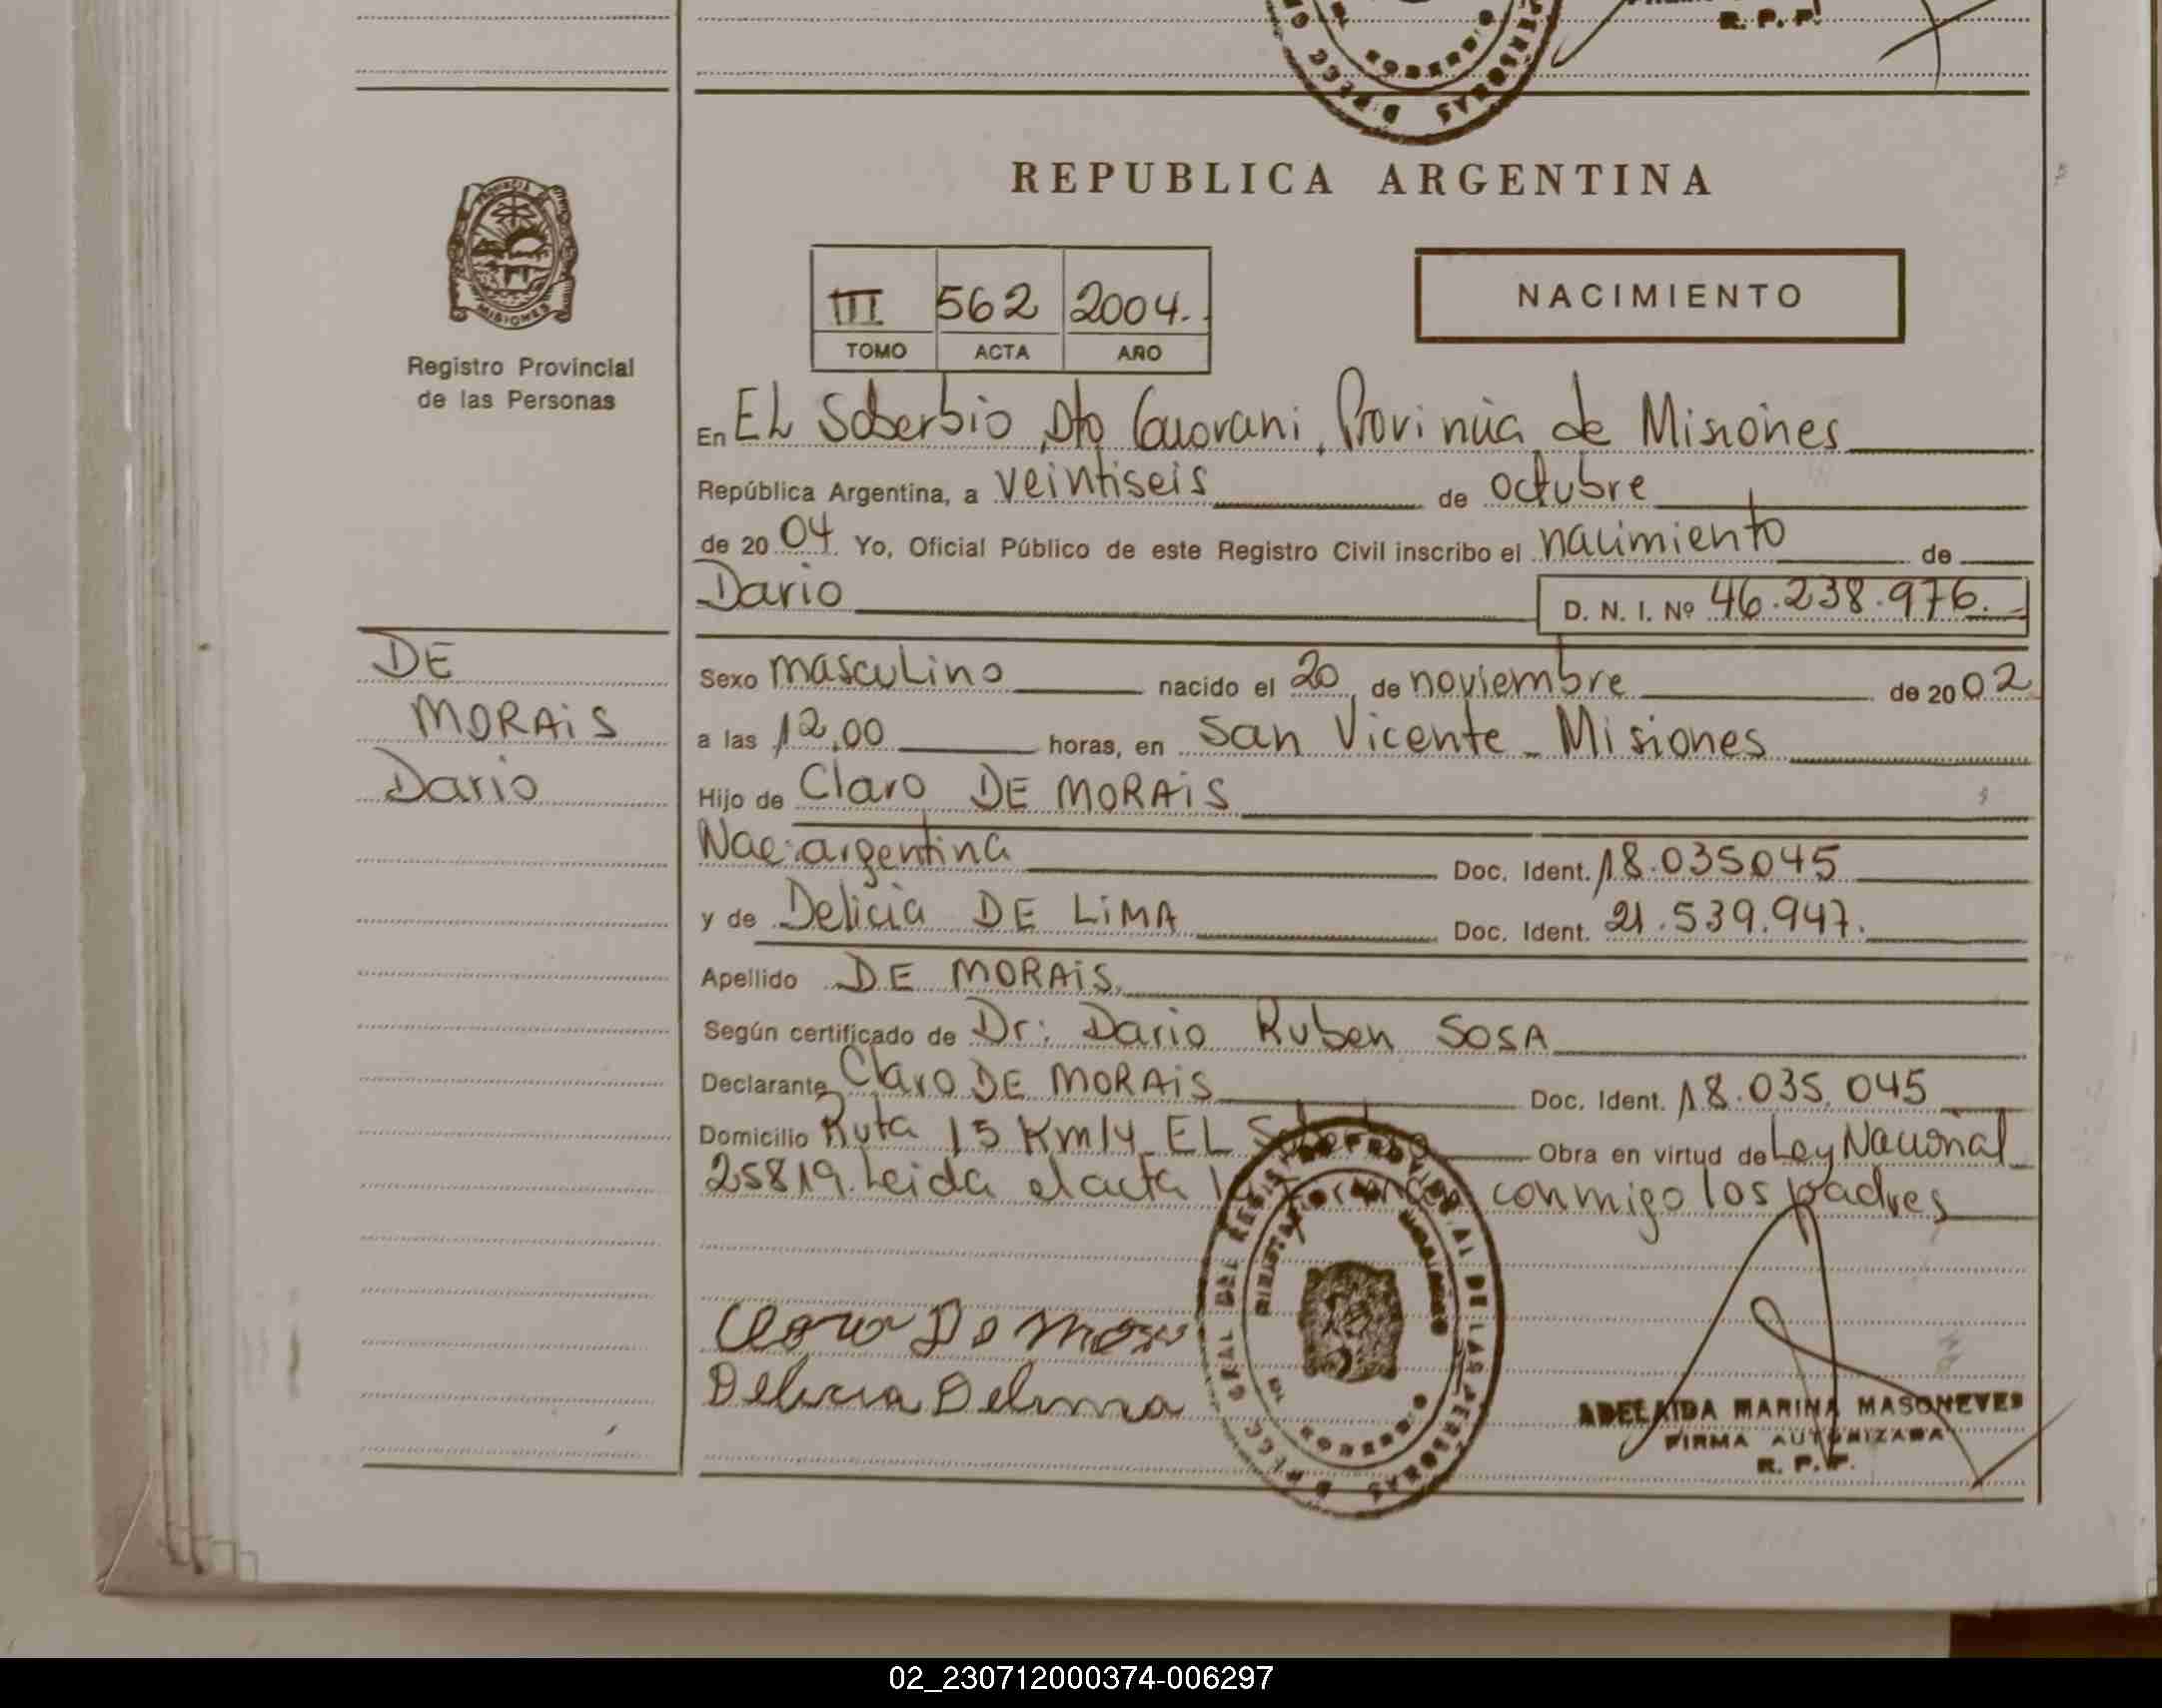 R. P. P.
REPUBLICA ARGENTINA
PROVINCIA
MISIONES
Registro Provincial
de las Personas
III 562 2004.
TOMO ACTA AÑO
NACIMIENTO
En EL Soberbio, Dto Guarani, Provincia de Misiones
República Argentina, a veintiseis de octubre
de 2004. Yo, Oficial Público de este Registro Civil inscribo el nacimiento de
Dario D. N. I. Nº 46.238.976.
DE
MORAiS
Dario
Sexo masculino nacido el 20 de noviembre de 2002
a las 12,00 horas, en San Vicente - Misiones
Hijo de Claro DE MORAiS
Nac. argentina Doc. Ident. 18.035045
y de Delicia DE LiMA Doc. Ident. 21.539.947.
Apellido DE MORAiS.
Según certificado de Dr: Dario Ruben SOSA
Declarante Claro DE MORAiS Doc. Ident. 18.035.045
Domicilio Ruta 15 Km 14 EL Soberbio Obra en virtud de Ley Nacional
25819. Leida el acta conmigo los padres
Delicia Delima
GRAL DEL REGISTRO PROVINCIAL DE LAS PERSONAS
ADELAIDA MARINA MASONEVES
FIRMA AUTORIZADA
R. P. P.
02_230712000374-006297